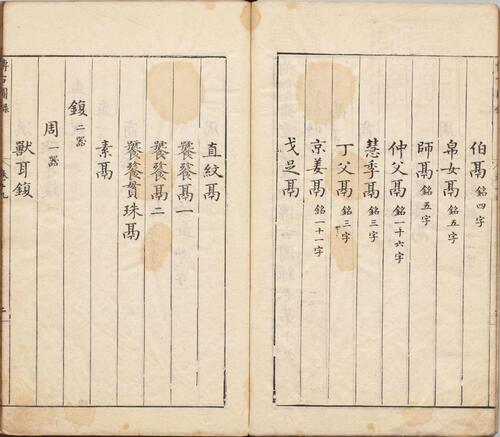 伯鬲銘四字
帛女鬲銘五字
師鬲銘五字
仲父鬲銘一十六字
慧季鬲銘三字
丁父鬲銘三字
京姜鬲銘一十一字
戈足鬲
直紋鬲
饕餮鬲一
饕餮鬲二
饕餮貫珠鬲
素鬲
鍑二器
周一器
獸耳鍑
博古圖錄
卷十九